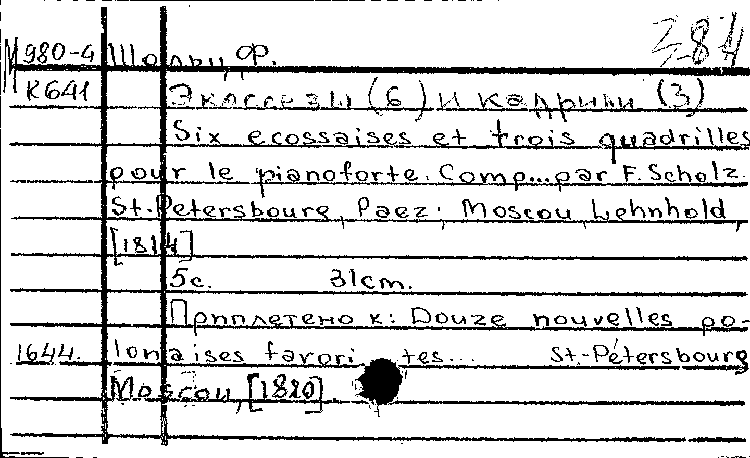 М 980-4 Шольц, Ф. 384
К641 Экосезы (6) и кадрили (3)
Six ecossaises et trois quadrilles
pour le pianoforte. Comp...par F. Scholz.
St.-Petersbourg, Paez; Moscou, Lehnhold,
[1814]
5с. 31cm.
Приплетено к: Douze nouvelles po-
1644. lonaises favorites... St.-Pétersbourg
Moscou, [1820].